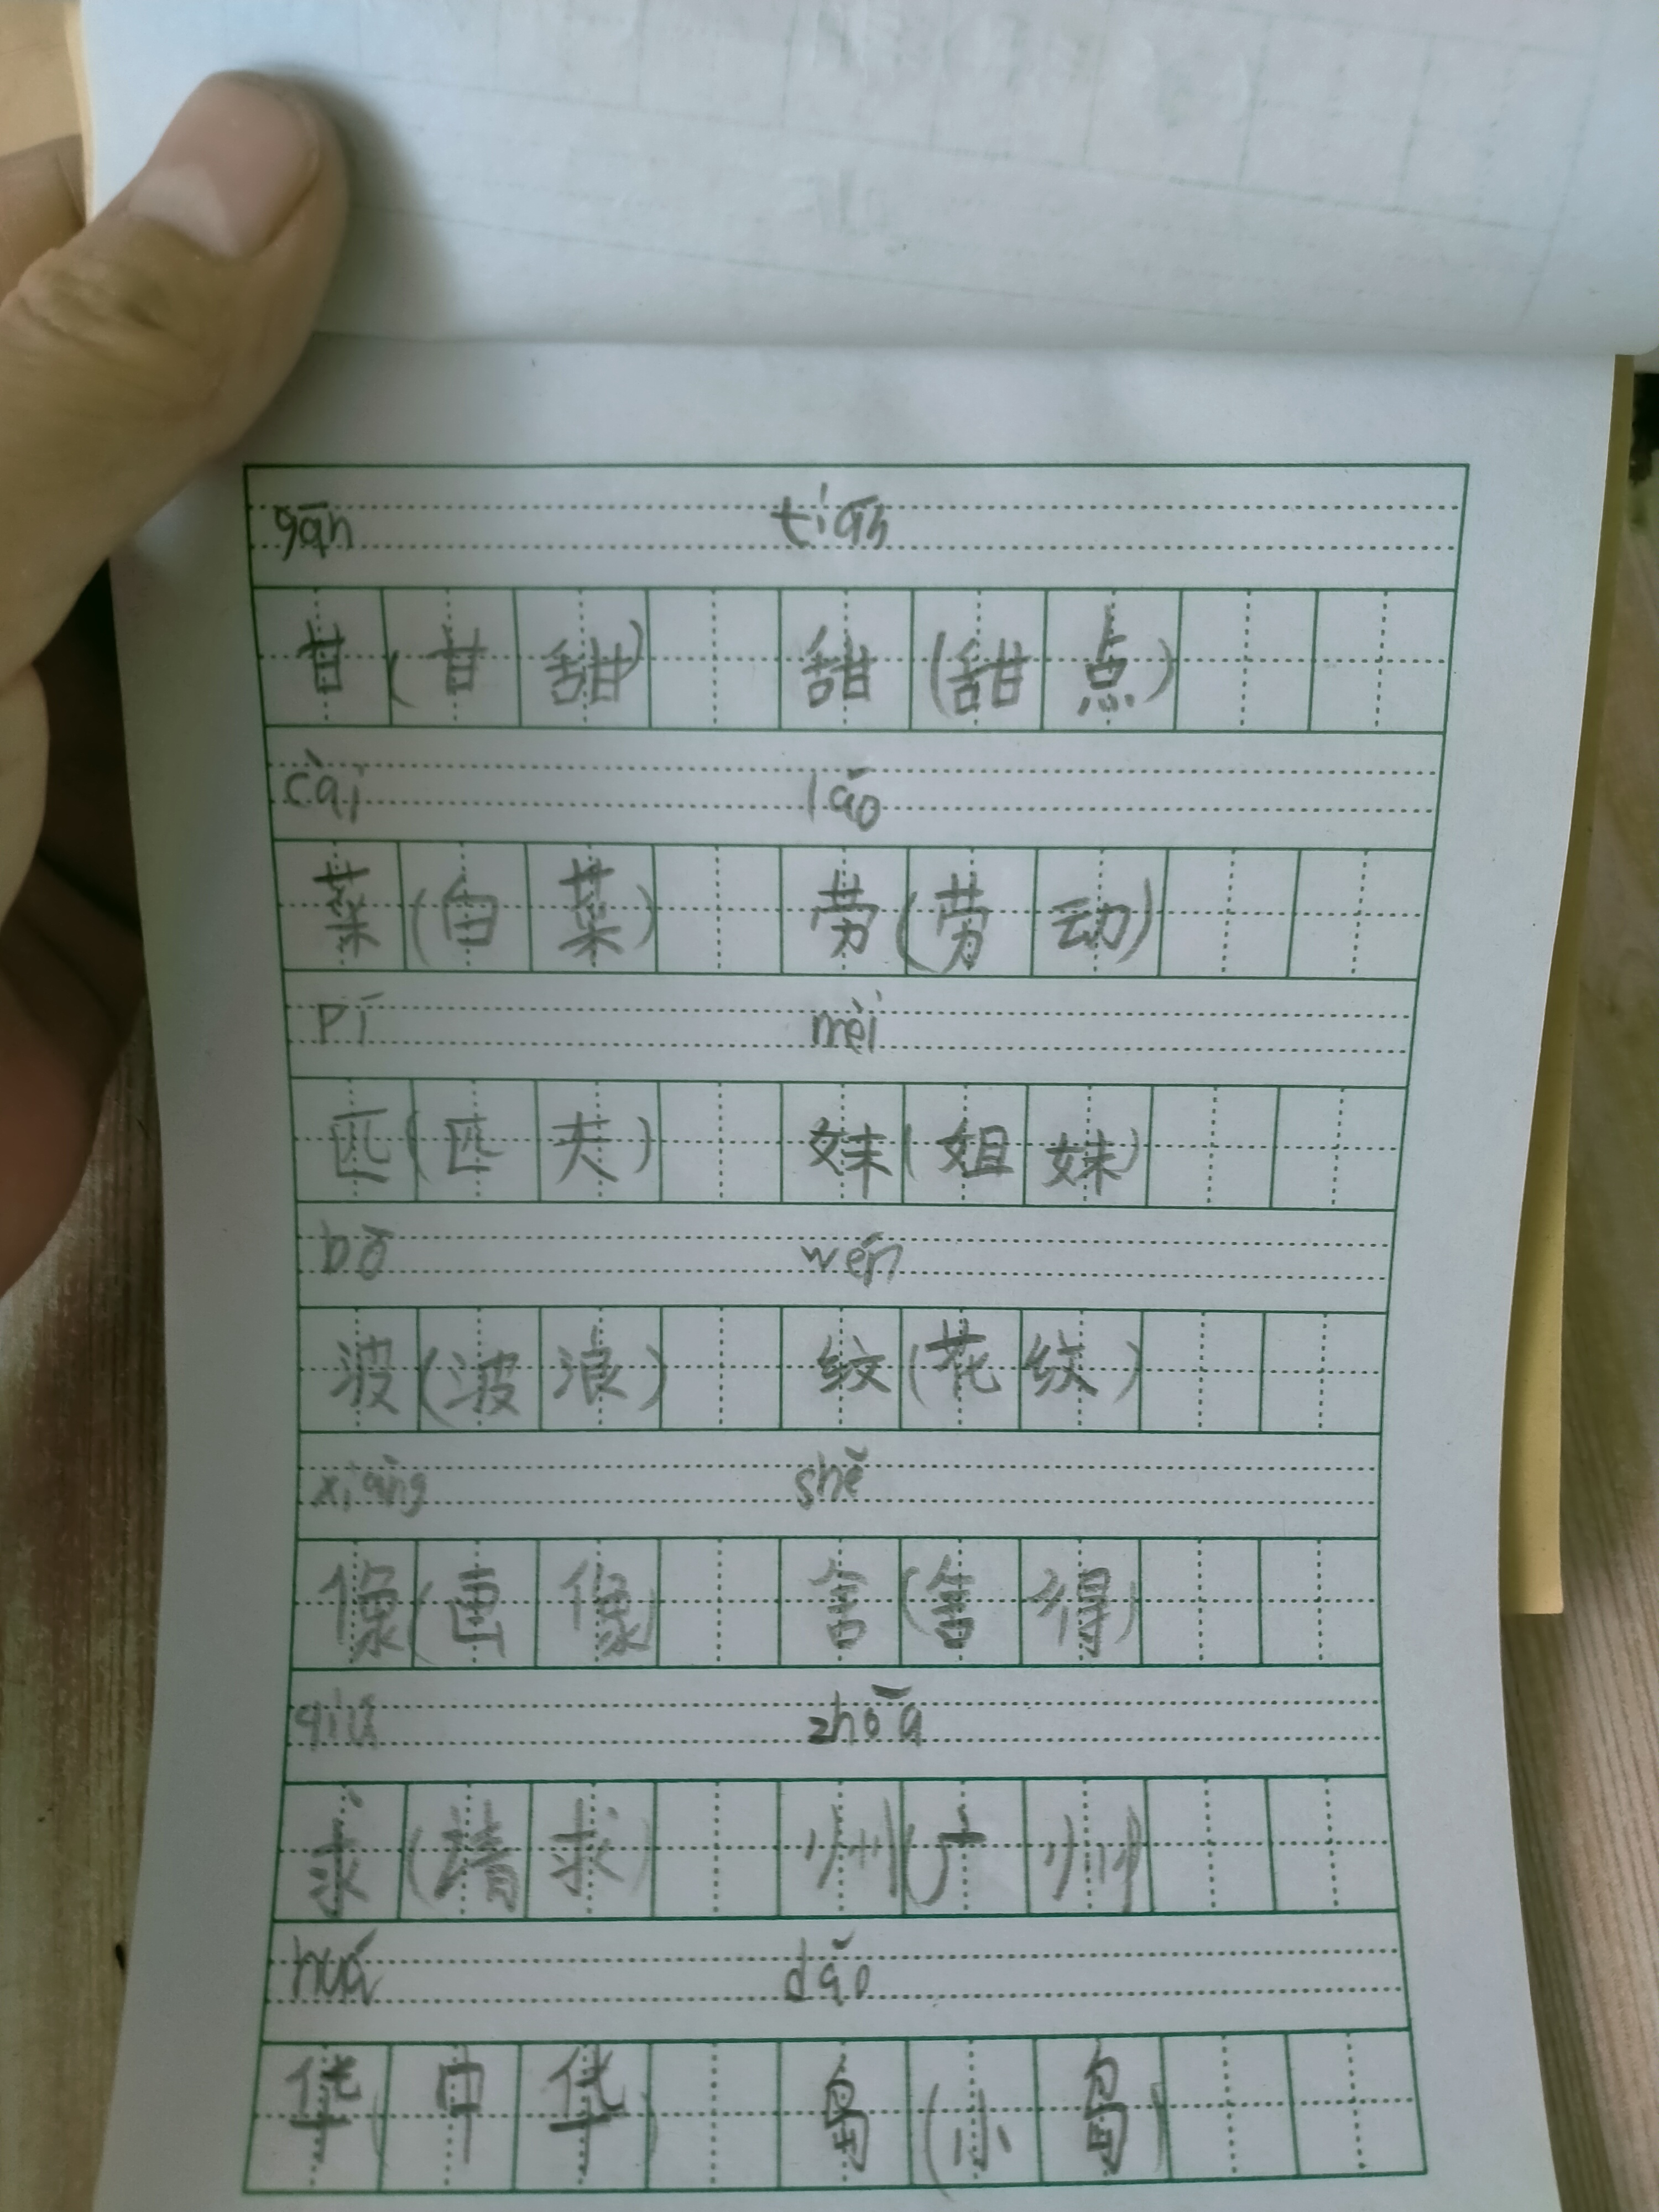 gān tián
甘(甘甜) 甜(甜点)
cài láo
菜(白菜) 劳(劳动)
pí mèi
匹(匹夫) 妹(姐妹)
bō wén
波(波浪) 纹(花纹)
xiàng shě
像(画像) 舍(舍得)
qiú zhōa
求(请求) 州(广州)
huá dǎo
华(中华) 岛(小岛)